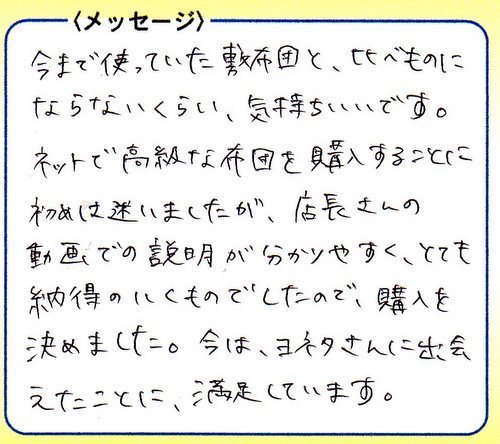 〈メッセージ〉
今まで使っていた敷布団と、比べものに
ならないくらい、気持ちいいです。
ネットで高級な布団を購入することに
初めは迷いましたが、店長さんの
動画での説明が分かりやすく、とても
納得のいくものでしたので、購入を
決めました。今は、ヨネタさんに出会
えたことに、満足しています。